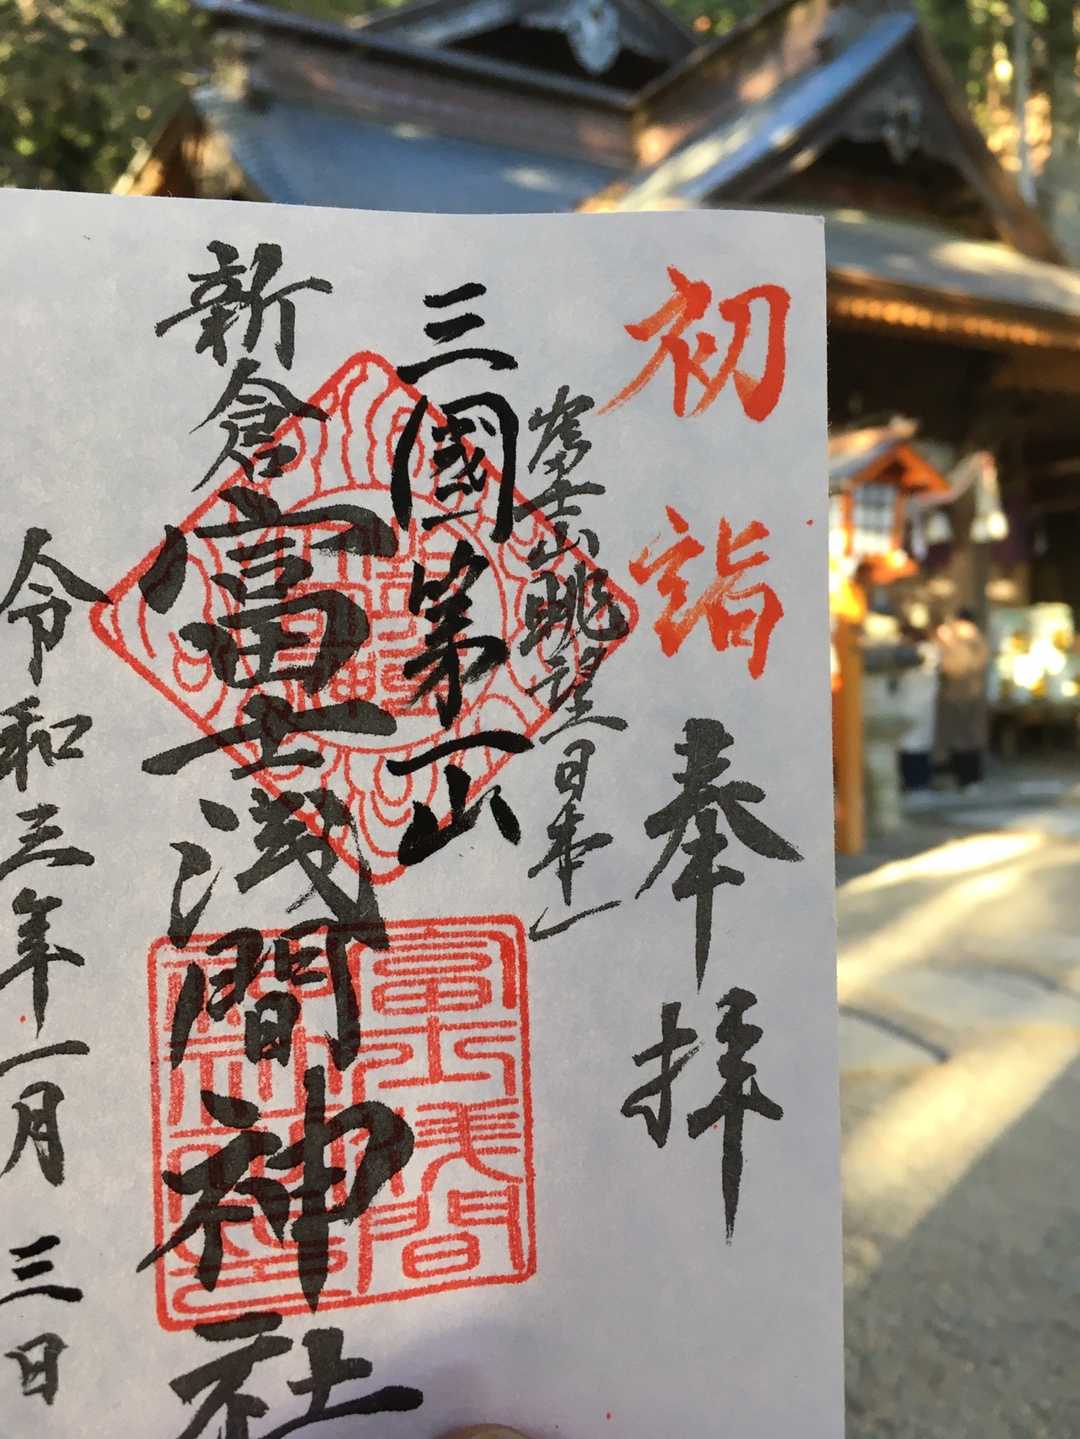 初詣
奉拝
富士山眺望日本一
三國第一山
新倉富士浅間神社
令和三年一月三日
富士浅間